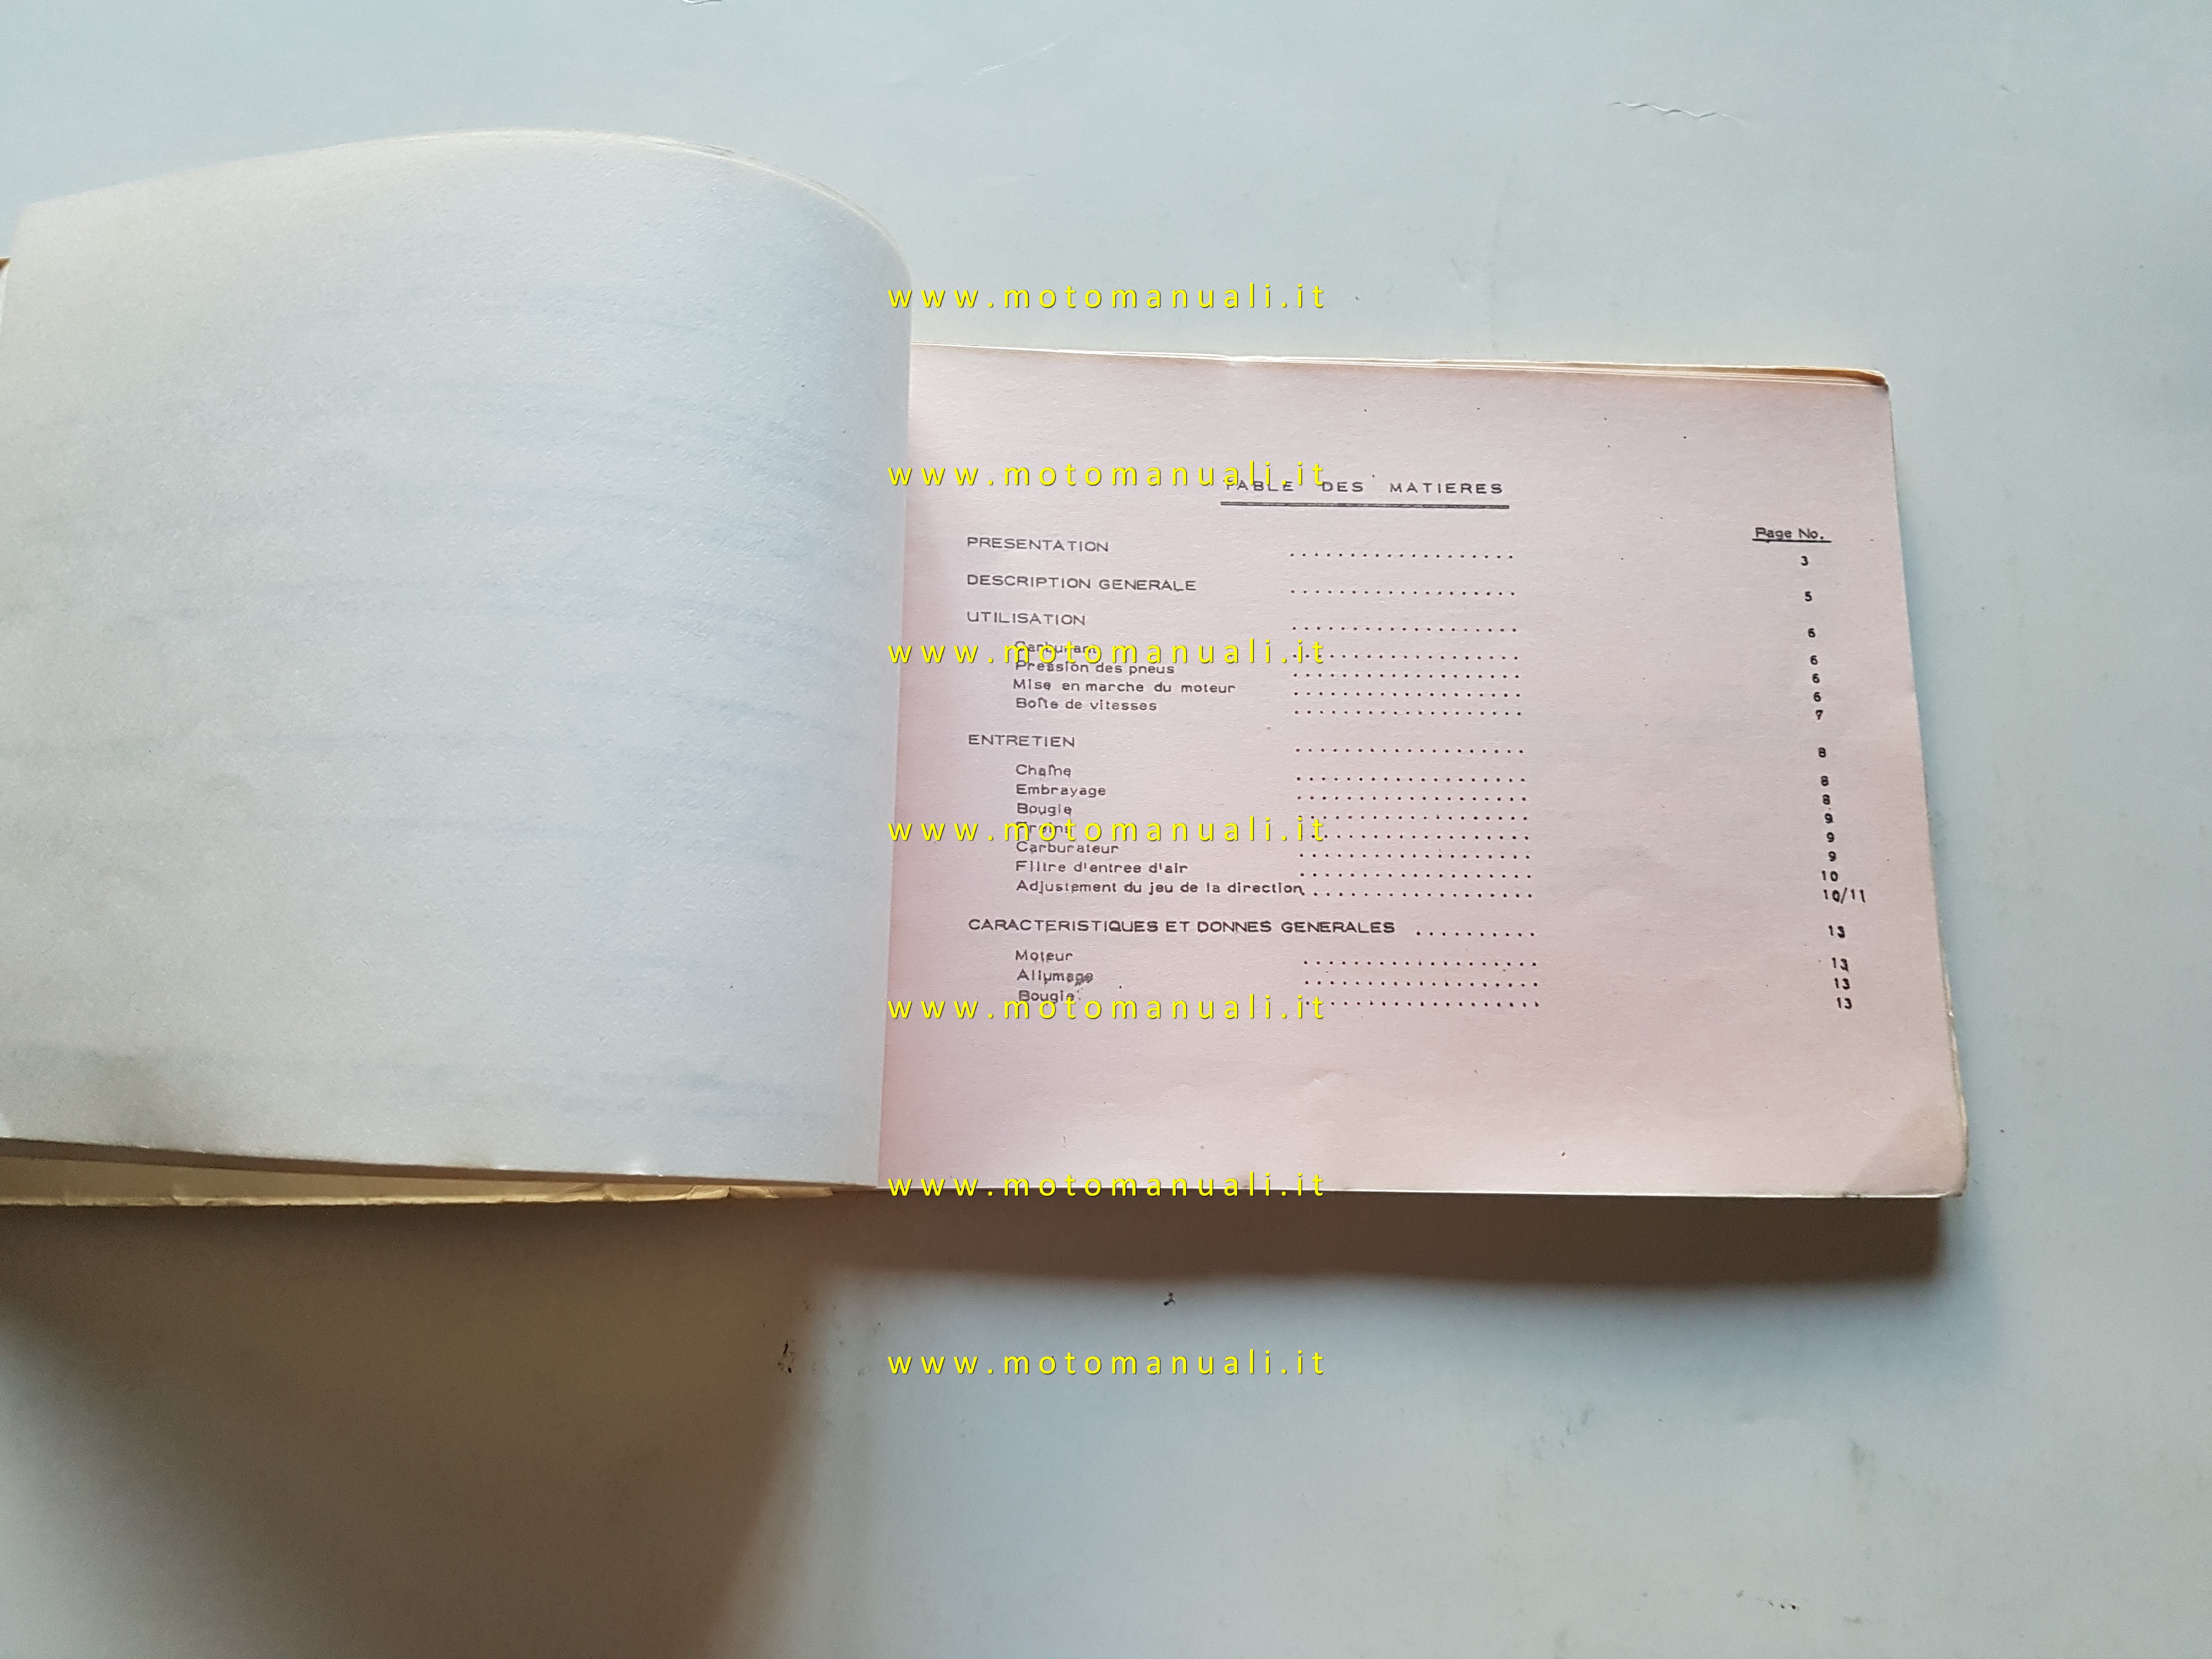 www.motomanuali.it
www.motomanuali.it
TABLE DES MATIERES
Page No.
PRESENTATION ................... 3
DESCRIPTION GENERALE ................... 5
UTILISATION ................... 6
www.motomanuali.it
Carburant ................... 6
Pression des pneus ................... 6
Mise en marche du moteur ................... 6
Boîte de vitesses ................... 7
ENTRETIEN ................... 8
Chaîne ................... 8
Embrayage ................... 8
Bougie ................... 9
www.motomanuali.it
Freins ................... 9
Carburateur ................... 9
Filtre d'entree d'air ................... 10
Adjustement du jeu de la direction ................... 10/11
CARACTERISTIQUES ET DONNES GENERALES .......... 13
Moteur ................... 13
Allumage ................... 13
Bougie ................... 13
www.motomanuali.it
www.motomanuali.it
www.motomanuali.it